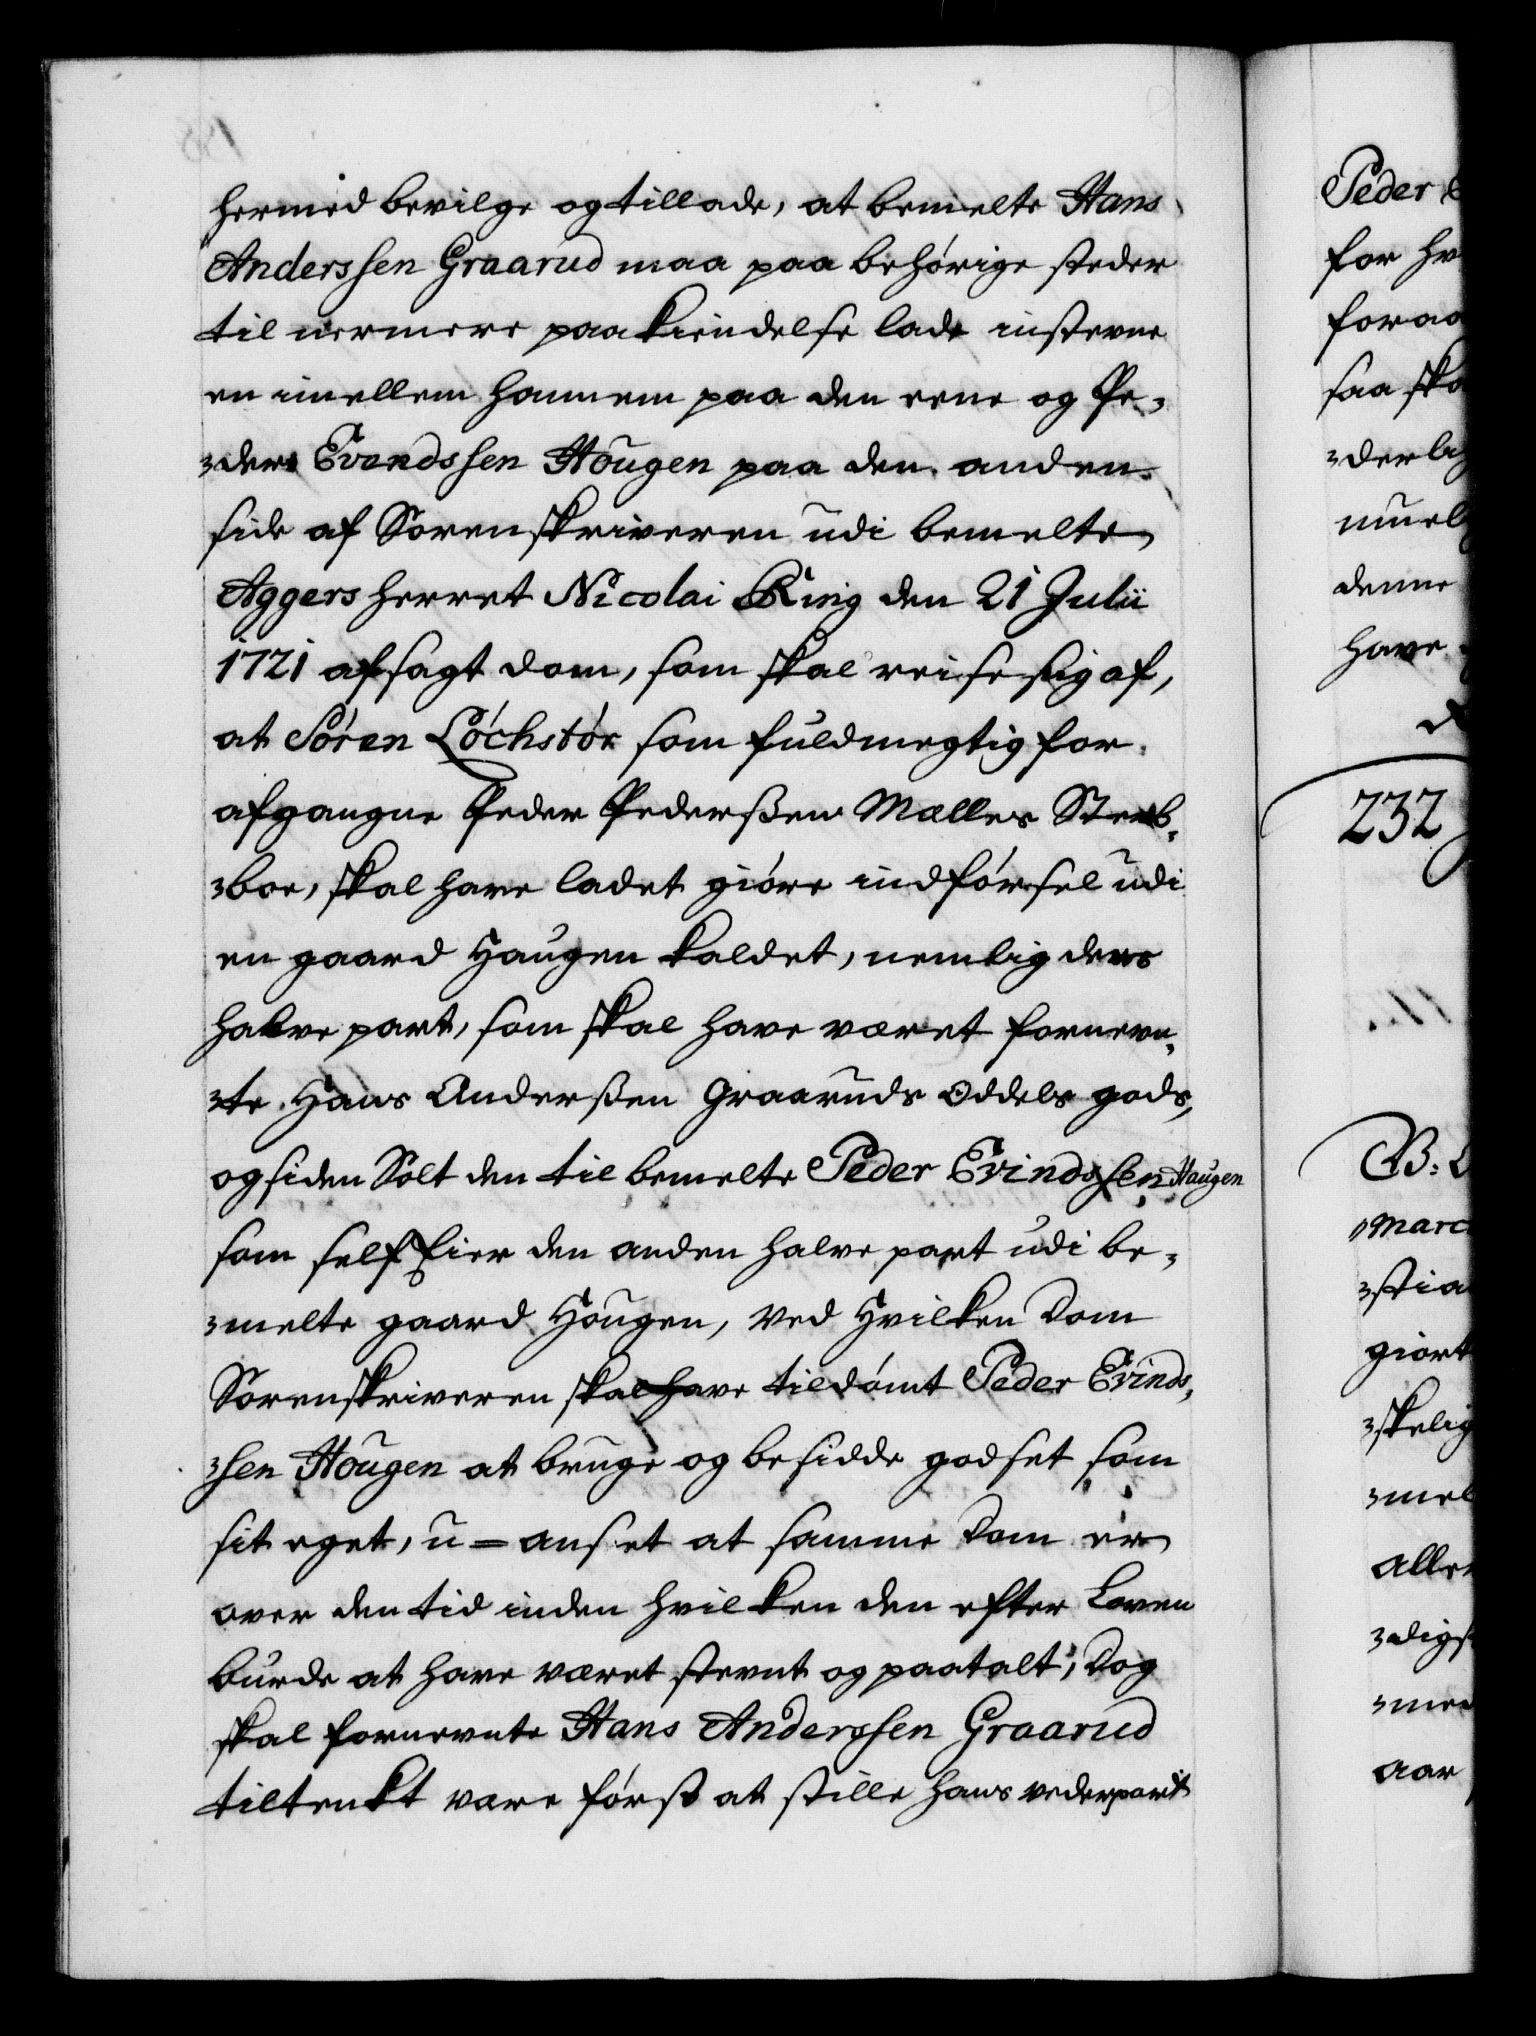 hermed bevilge og tillade, at bemelte Hans
Anderssen Graarud maa paa behörige steder
til nermere paakiendelse lade instevne
en imellem hannem paa den eene og Pe¬
¬der Evendssen Hougen paa den anden
side af Sorenskriveren udi bemelte
Aggers herret Nicolai Ring den 21 Julii
1721 afsagt dom, som skal reise sig af,
at Sören Löchstör som fuldmegtig for
afgangne Peder Pederssen Mølles Sterb¬
¬boe, skal have ladet giöre indförsel udi
en gaard Haugen kaldet, nemlig dens
halve part, som skal have været fornevn¬
¬te Hans Anderssen Graaruds Oddels gods,
og siden Solt den til bemelte Peder Evindssen Haugen
som self Eier den anden halve part udi be¬
¬melte gaard Hougen, ved Hvilken Dom
Sorenskriveren skal have tildömt Peder Evinds¬
¬sen Hougen at bruge og besidde godset som
sit eget, u=anset at samme Dom er
over den tid inden hvilken den efter Loven
burde at have været stevnt og paatalt; Dog
skal fornevnte Hans Anderssen Graarud
tiltenkt være först at stille hans vederpart
Peder
for
saa
denne
have
232
B:
Marc
¬stia
giort
¬skelig
¬mel
aller
¬digst
aar